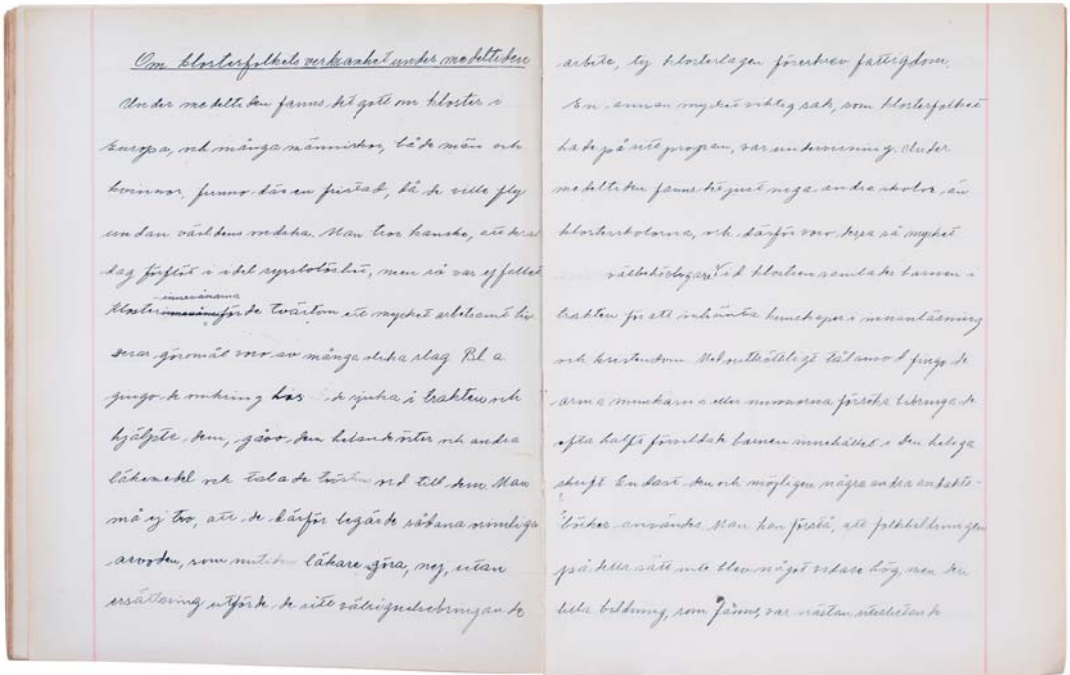 Om klosterfolkets verksamhet under medeltiden
Under medeltiden fanns det gott om kloster i
Europa, och många människor, både män och
kvinnor, funno där en fristad, då de ville fly
undan världens ondska. Man tror kanske, att deras
dag förflöt i idel sysslolöshet, men så var ej fallet
Klosterinnevånarna förde tvärtom ett mycket arbetsamt liv.
Deras göromål voro av många olika slag Bl. a
gingo de omkring hos de sjuka i trakten och
hjälpte dem, gåvo dem helande örter och andra
läkemedel och talade tröstens ord till dem. Man
må ej tro, att de därför begärde sådana orimliga
arvoden, som nutidens läkare göra, nej, utan
ersättning utförde de sitt välsignelsebringande
arbete, ty klosterlagen föreskrev fattigdom.
En annan mycket viktig sak, som klosterfolket
hade på sitt program, var undervisning. Under
medeltiden fanns det just inga andra skolor än
klosterskolorna, och därför voro dessa så mycket
välbehövligare. Vid klostren samlades barnen i
trakten för att inhämta kunskaper i innanläsning
och kristendom Med outtröttligt tålamod fingo de
arma munkarna eller nunnorna försöka bibringa de
ofta halft förvildade barnen innehållet i den heliga
skrift Endast den och möjligen några andra andakts-
böcker användes Man kan förstå, att folkbildningen
på detta sätt inte blev något vidare hög, men den
lilla bildning, som fanns, var nästan uteslutande